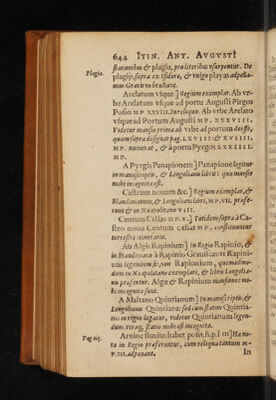 644 ITIN. ANT. AVGVSTI
stationibus & plagia, pro litoribus vsurpentur. De
Plagia. plagijs suprà ex Isidoro, & vulgo playas adpella-
mus Graui vocabulo.
Arelatum vsque ] Regium exemplar, Ab vr-
be Arelatum vsque ad portu Augusti Pirgos
Posito M P. XXXVIII. In reliquo. Ab vrbe Arelato
vsque ad Portum Augusti M P. XXXVIII.
Videtur mansio prima ab vrbe ad portum deesse,
quam supra designat pag. LXVIII & XVIIII.
M P. numerat, & à portu Pyrgos XXXIIII.
M P.
A Pyrgis Panapionem ] Panapione legitur
in manuscriptis, & Longoliano libro: quæ mansio
mihi incognita est.
Castrum nouum &c. ] Regium exemplar, &
Blandinianum, & Longolianus, M P. VII. præfe-
runt & in Neapolitano VIII.
Centum Cellas M P. V. ] Totidem suprà à Ca-
stro nouo Centum cellas M P. constituuntur
terrestri itinerario.
Ab Algis Rapinium ] In Regio Rapinio, &
in Blandiniano à Rapinio Grauiscas: vt Rapini-
um legendum sit, non Rapinium, quemadmo-
dum in Neapolitano exemplari, & libro Longolia-
no præfertur. Algæ & Rapinium mansiones mi-
hi incognitæ sunt.
A Maltano Quintianum ] In manuscriptis, &
Longoliano Quintianæ: sed cum statim Quintia-
nis in regio legatur, videtur Quintianum legen-
dum. vtraq; statio mihi est incognita.
Pag. 115. Armine fluuius habet posit. &c. ] III. Ita no-
ta in Regio præferuntur, cum reliqua tantum M-
P. III. adponant.
In